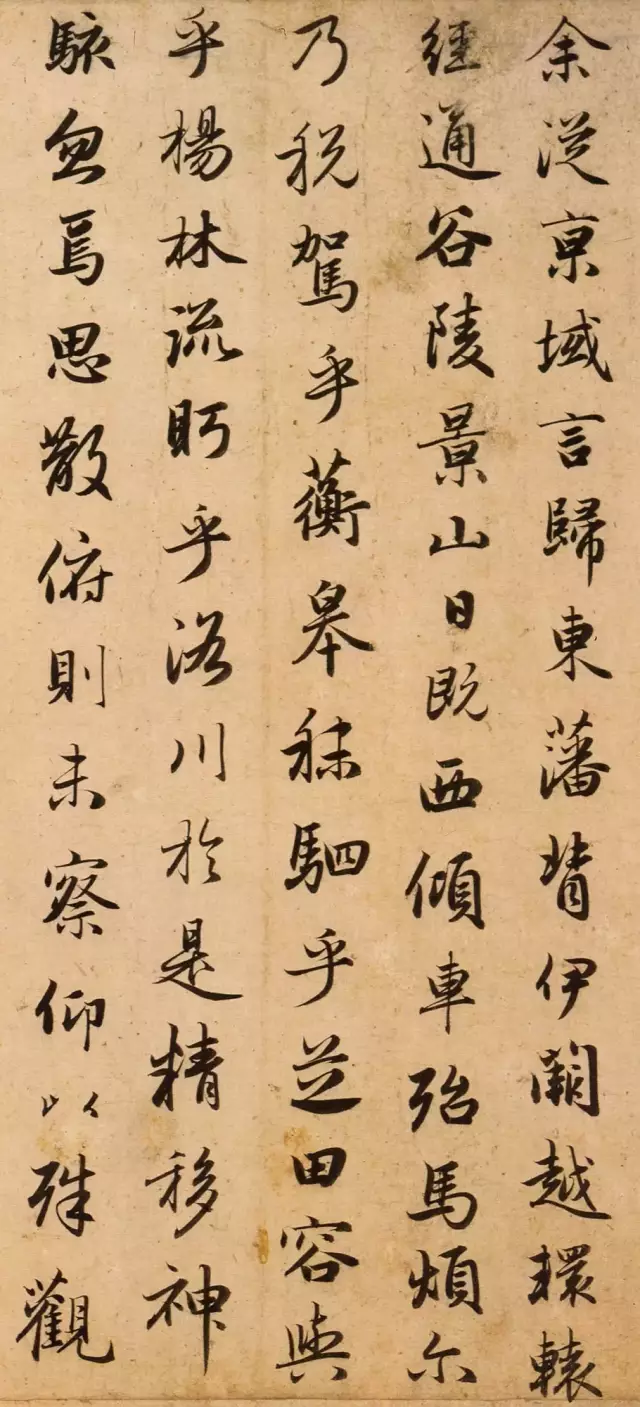 余従京域言歸東藩背伊闕越轘轅
經通谷陵景山日既西傾車殆馬煩尔
乃稅駕乎蘅皋秣駟乎芝田容與
乎楊林流眄乎洛川於是精移神
駭忽焉思散俯則未察仰以殊觀